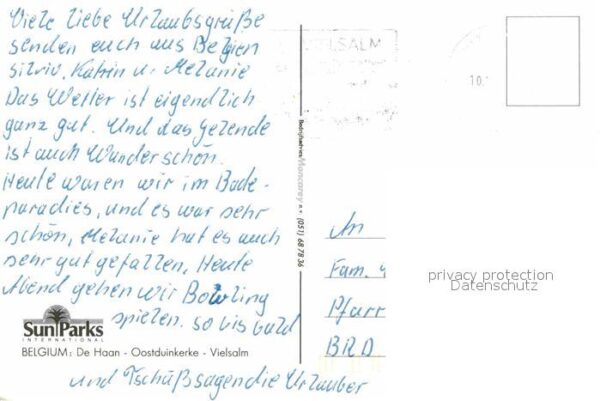 Viele liebe Urlaubsgrüße
senden euch aus Belgien
Silvio, Katrin u. Melanie
Das Wetter ist eigendlich
ganz gut. Und das gezende
ist auch Wunderschön.
Heute waren wir im Bade-
paradies, und es war sehr
schön, Melanie hat es auch
sehr gut gefallen, Heute
Abend gehen wir Bowling
spielen. so bis bald
und Tschüßsagen die Urlauber
SunParks
INTERNATIONAL
BELGIUM: De Haan - Oostduinkerke - Vielsalm
Moncarey n.v. (051) 68 78 36
VIELSALM
10.
An
Fam.
Pfarr
BRD
privacy protection
Datenschutz